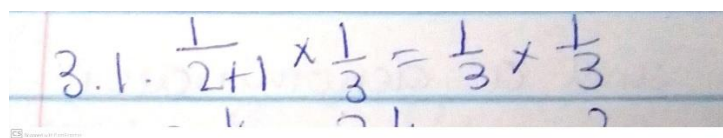 3.1. \frac{1}{2+1} × \frac{1}{3} = \frac{1}{3} × \frac{1}{3}